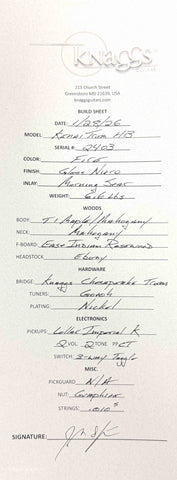 Knaggs
213 Church Street
Greensboro MD 21639, USA
knaggsguitars.com
BUILD SHEET
DATE: 1/28/26
MODEL Kenai Trem HB
SERIAL # 2403
COLOR: Fire
FINISH: Gloss Nitro
INLAY: Morning Star
WEIGHT: 6.6 Lbs
WOODS
BODY: T1 Maple/Mahogany
NECK: Mahogany
F-BOARD: East Indian Rosewood
HEADSTOCK: Ebony
HARDWARE
BRIDGE Knaggs Chesapeake Trem
TUNERS: Gotoh
PLATING: Nickel
ELECTRONICS
PICKUPS: Lollar Imperial K
2 VOL 2 TONE PP CT
SWITCH: 3-way Toggle
MISC.
PICKGUARD N/A
NUT: Graphite
STRINGS: .010s
SIGNATURE: